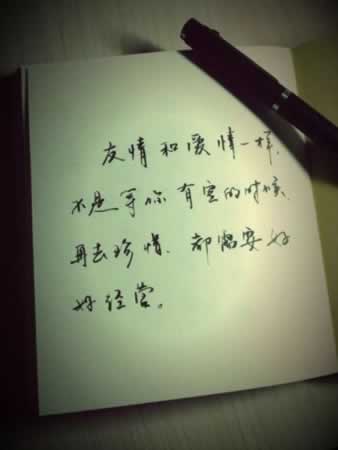 友情和爱情一样,
不是等你有空的时候,
再去珍惜.都需要好
好经营。